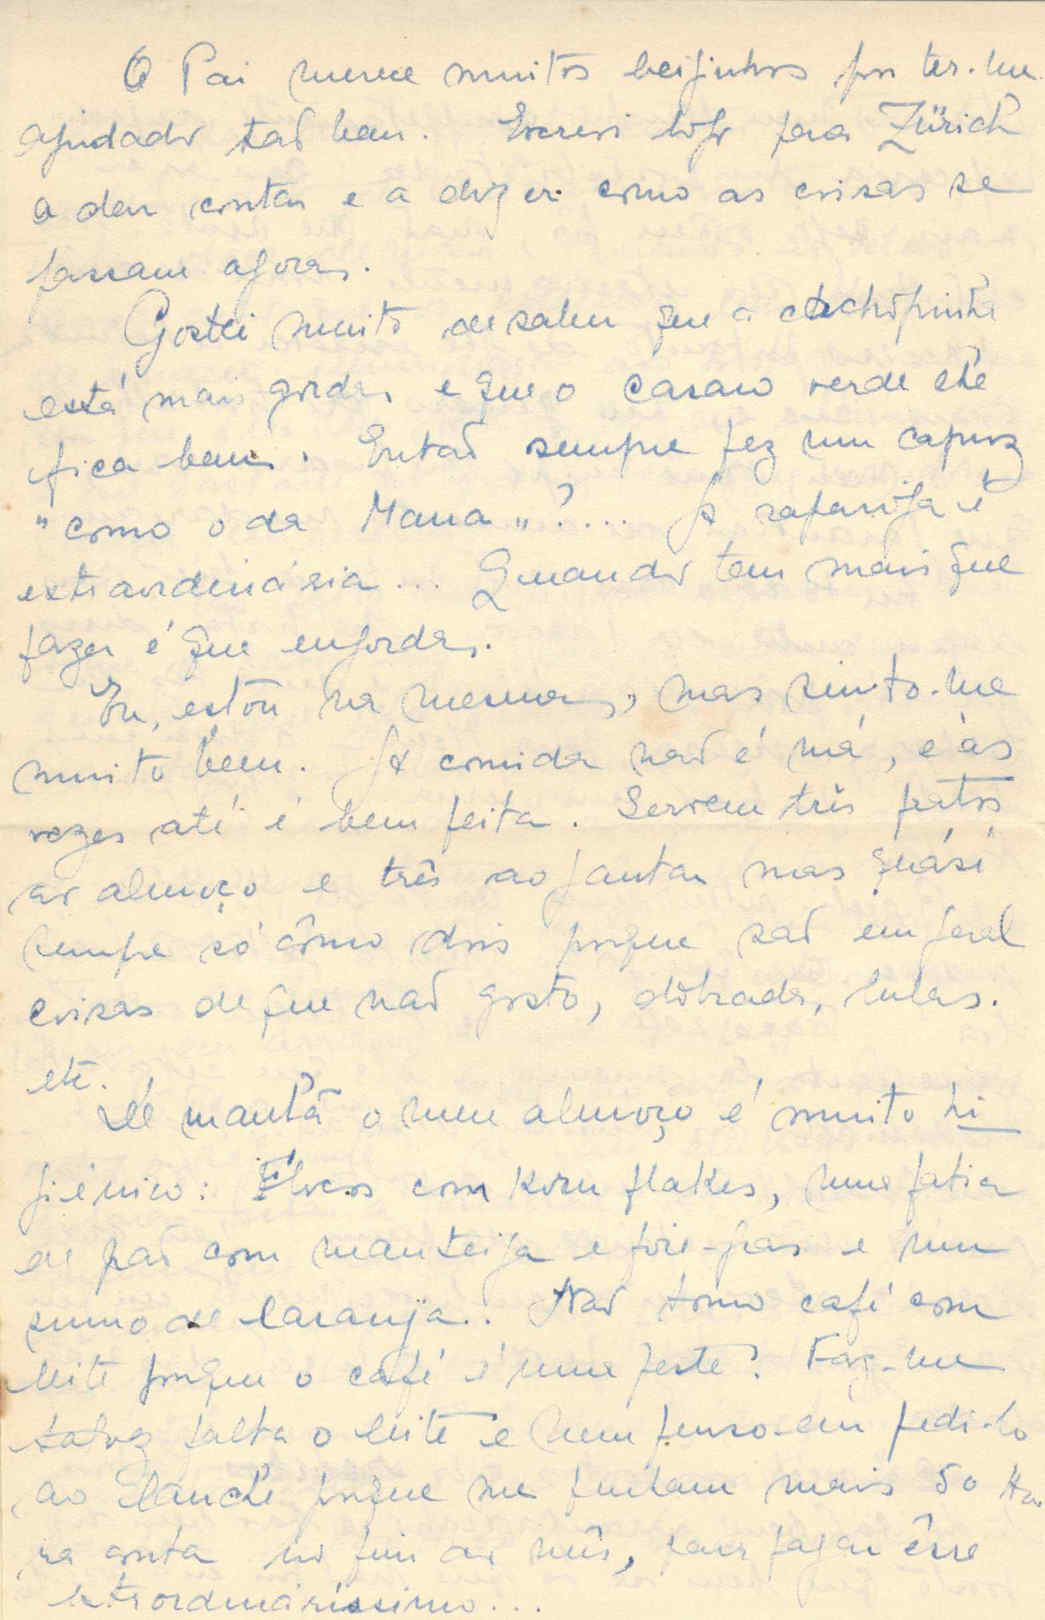 O Pai merece muitos beijinhos por ter-me
ajudado tão bem. Escrevi hoje para Zürich
a dar contas e a dizer como as coisas se
passam agora.
Gostei muito de saber que a
está mais gorda, e que o casaco verde lhe
fica bem. Então sempre fez um capuz
"como o da Mana"?... A rapariga é
extraordinária... Quando tem mais que
fazer é que engorda.
Eu, estou na mesma, mas sinto-me
muito bem. A comida não é má, e às
vezes até é bem feita. Servem três pratos
ao almoço e três ao jantar mas quási
sempre só cômo dois porque são em geral
coisas de que não gosto, dobrada, lulas.
etc.
De manhã o meu almoço é muito hi
giénico: Flocos com Korn flakes, uma fatia
de pão com manteiga e foie-gras e um
sumo de laranja. Não tomo café com
leite porque o café é uma peste! Faz-me
talvez falta o leite e nem penso em pedi-lo
ao lanche porque me juntam mais 50
na conta no fim do mês, para pagar êsse
extraordinaríssimo...